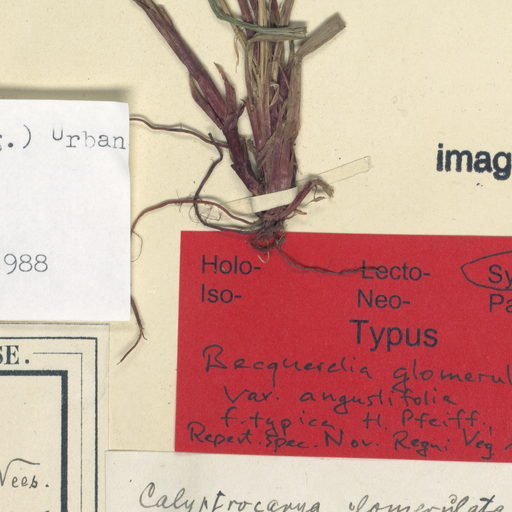 .) Urban
imag
1988
Holo- Lecto- Sy
Iso- Neo- Pa
Typus
Becquerelia glomerul
var. angustifolia
f. typica H. Pfeiff.,
Repert. spec. Nov. Regni Veg
SE.
Nees.
Calyptrocarya glomerulata